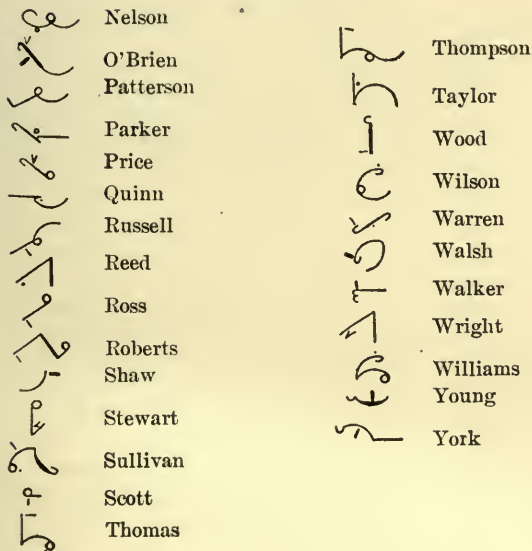 Nelson
O'Brien
Patterson
Parker
Price
Quinn
Russell
Reed
Ross
Roberts
Shaw
Stewart
Sullivan
Scott
Thomas
Thompson
Taylor
Wood
Wilson
Warren
Walsh
Walker
Wright
Williams
Young
York